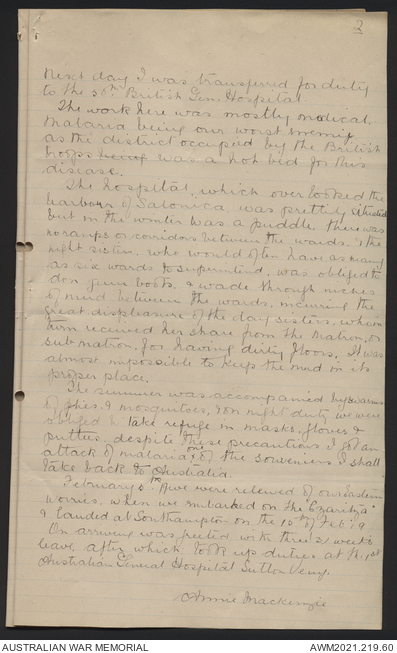 2
Next day I was transferred for duty
to the 50th British Gen. Hospital
The work here was mostly medical,
Malaria being our worst enemy
as the district occupied by the British
troops was a hot bed for this
disease.
The hospital, which overlooked the
harbour of Salonica, was prettily situated
but in the winter was a puddle, there was
no ramps or corridors between the wards, & the
night sister, who would often have as many
as six wards to superintend, was obliged to
don gum boots, & wade through inches
of mud between the wards, incurring the
great displeasure of the day sisters, whom in
turn received her share from the Matron, or
sub matron, for having dirty floors. It was
almost impossible to keep the mud in its
proper place.
The summer was accompanied by swarms
of flies, & mosquitoes, & on night duty we were
obliged to take refuge in masks, gloves &
puttees, despite these precautions I got an
attack of malaria one of the souvenirs I shall
take back to Australia.
February we were relieved of our Eastern
worries, when we embarked on the "Czaritza"
& landed at Southampton on the 10th of Feb. 19
On arriving was greeted with three weeks
leave, after which took up duties at the 1st
Australian General Hospital Sutton Veny.
Annie Mackenzie
AUSTRALIAN WAR MEMORIAL
AWM2021.219.60